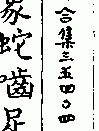 合集三五四〇四
蛇嚙足